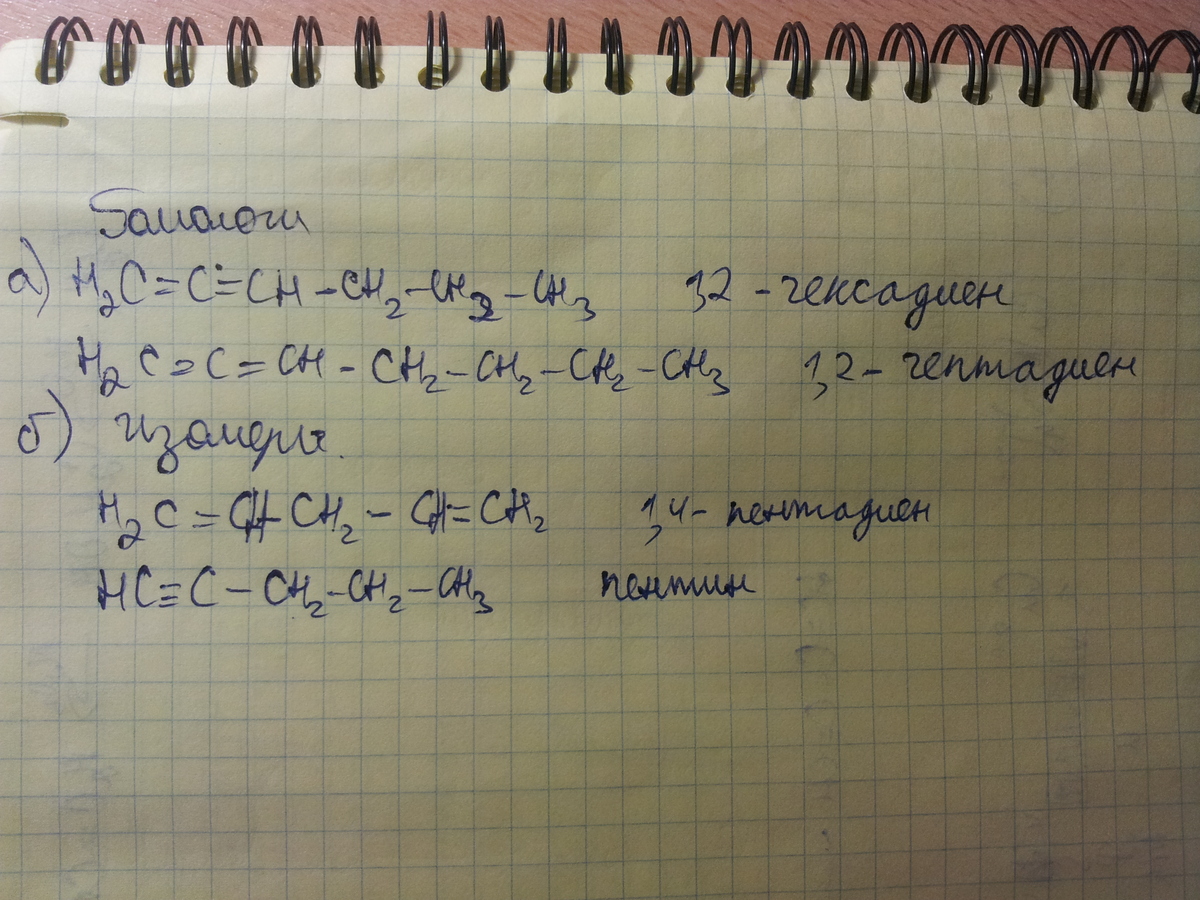 Гомологи
а) H₂C=C=CH-CH₂-CH₂-CH₃ 1,2-гексадиен
H₂C=C=CH-CH₂-CH₂-CH₂-CH₃ 1,2-гептадиен
б) Изомеры.
H₂C=CH-CH₂-CH=CH₂ 1,4-пентадиен
HC≡C-CH₂-CH₂-CH₃ пентин